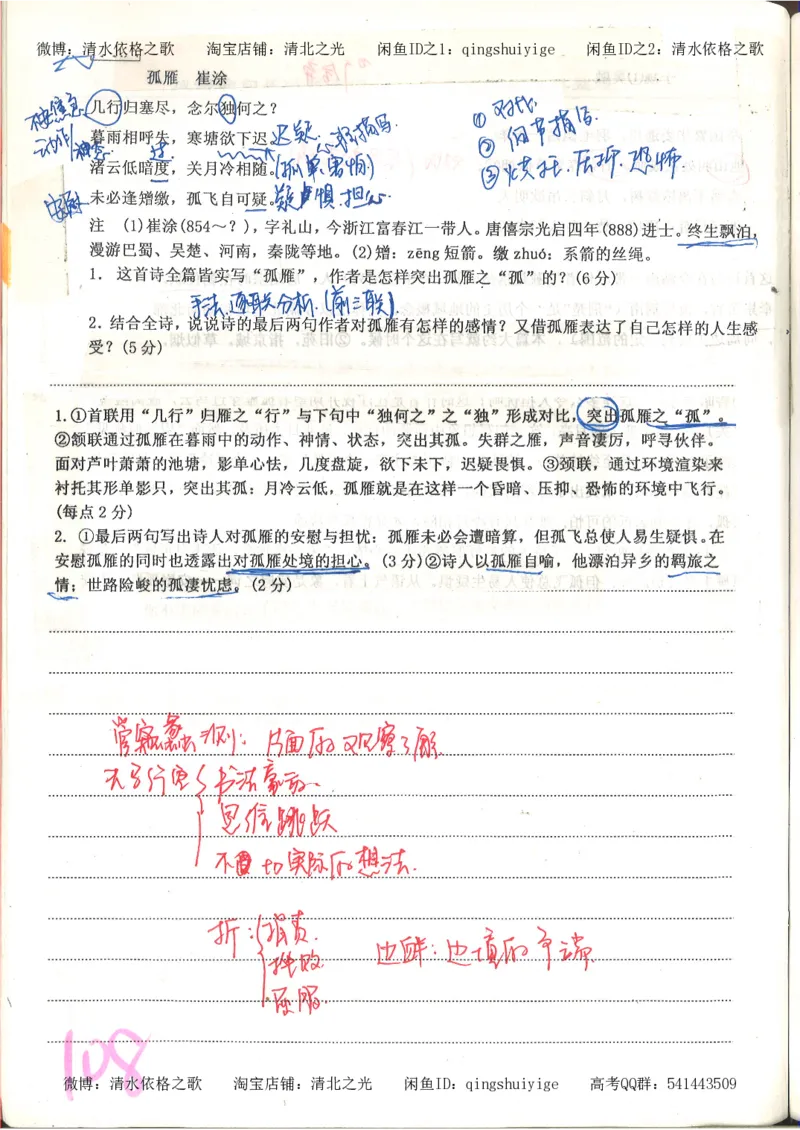 微博：清水依格之歌 淘宝店铺：清北之光 闲鱼ID之1：qingshuiyige 闲鱼ID之2：清水依格之歌
孤雁 崔涂
几行归塞尽，念尔独何之？
① 对比
暮雨相呼失，寒塘欲下迟。迟疑
② 细节描写
动作 神态
渚云低暗度，关月冷相随。(孤单、害怕)
③ 烘托
未必逢矰缴，孤飞自可疑。疑虑 惧、担心
安慰
注 (1)崔涂(854～？)，字礼山，今浙江富春江一带人。唐僖宗光启四年(888)进士。终生飘泊，
漫游巴蜀、吴楚、河南，秦陇等地。(2)矰：zēng 短箭。缴 zhuó：系箭的丝绳。
1. 这首诗全篇皆实写“孤雁”，作者是怎样突出孤雁之“孤”的？(6分)
手法，逐联分析.(前三联)
2. 结合全诗，说说诗的最后两句作者对孤雁有怎样的感情？又借孤雁表达了自己怎样的人生感
受？(5分)
1.①首联用“几行”归雁之“行”与下句中“独何之”之“独”形成对比，突出孤雁之“孤”。
②颔联通过孤雁在暮雨中的动作、神情、状态，突出其孤。失群之雁，声音凄厉，呼寻伙伴。
面对芦叶萧萧的池塘，影单心怯，几度盘旋，欲下未下，迟疑畏惧。③颈联，通过环境渲染来
衬托其形单影只，突出其孤：月冷云低，孤雁就是在这样一个昏暗、压抑、恐怖的环境中飞行。
(每点2分)
2. ①最后两句写出诗人对孤雁的安慰与担忧：孤雁未必会遭暗算，但孤飞总使人易生疑惧。在
安慰孤雁的同时也透露出对孤雁处境的担心。(3分)②诗人以孤雁自喻，他漂泊异乡的羁旅之
情；世路险峻的孤凄忧虑。(2分)
管窥蠡测：片面的观察了解
天马行空 书法豪放.
思维跳跃
不切实际的想法.
折：指责. 边衅：边境的争端
挫败
屈服.
108
微博：清水依格之歌 淘宝店铺：清北之光 闲鱼ID：qingshuiyige 高考QQ群：541443509